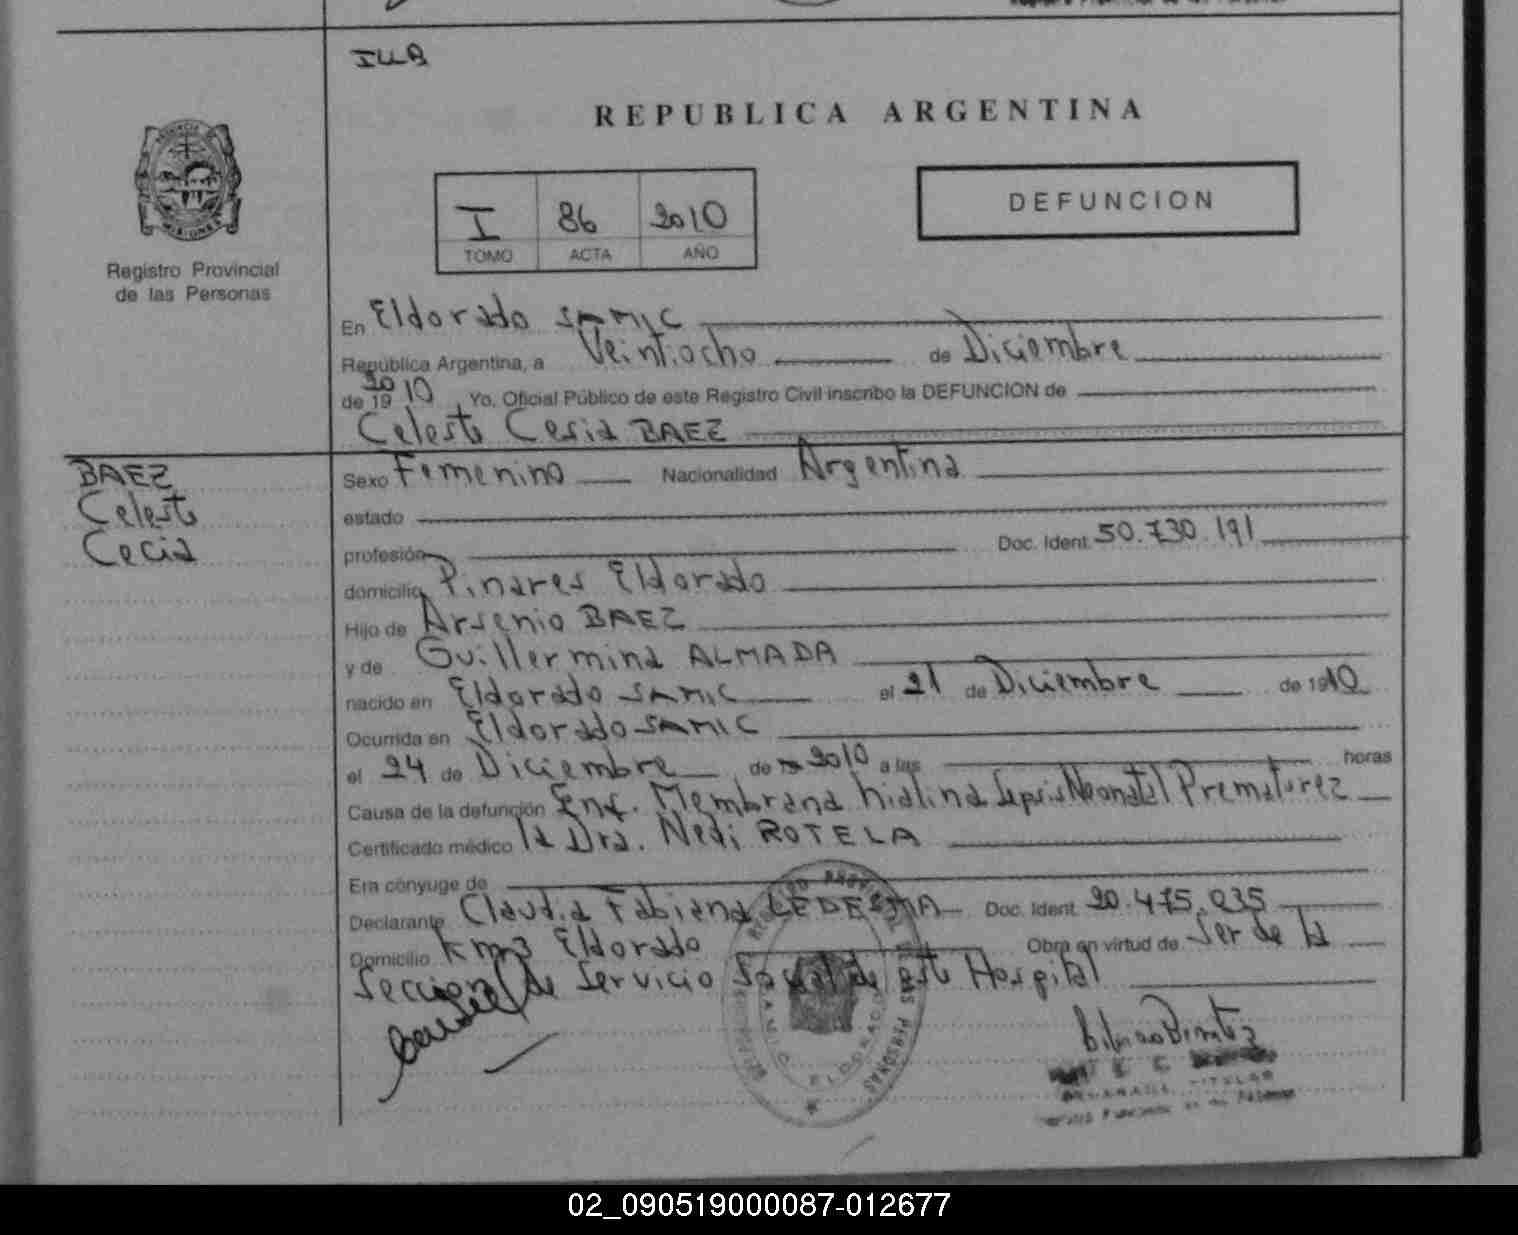 ILLA
REPUBLICA ARGENTINA
I 86 2010
TOMO ACTA AÑO
DEFUNCION
MISIONES
Registro Provincial
de las Personas
En Eldorado SAMIC
República Argentina, a Veintiocho de Diciembre
de 19 2010, Yo, Oficial Público de este Registro Civil inscribo la DEFUNCION de
Celeste Cesia BAEZ
BAEZ
Celeste
Cecia
Sexo Femenino Nacionalidad Argentina
estado
profesión Doc. Ident. 50.730.191
domicilio Pinares Eldorado
Hijo de Arsenio BAEZ
y de Guillermina ALMADA
nacido en Eldorado SAMIC el 21 de Diciembre de 1910
Ocurrida en Eldorado SAMIC
el 24 de Diciembre de 2010 a las horas
Causa de la defunción Enf. Membrana hialina Sepsis Neonatal Prematurez
Certificado médico la Dra. Nedi ROTELA
Era cónyuge de
Declarante Claudia Fabiana LEDESMA Doc. Ident. 20.475.035
Domicilio km 3 Eldorado Obra en virtud de Ser de la
Seccion de Servicio Social de este Hospital
REGISTRO PROVINCIAL DE LAS PERSONAS
ELDORADO
02_090519000087-012677